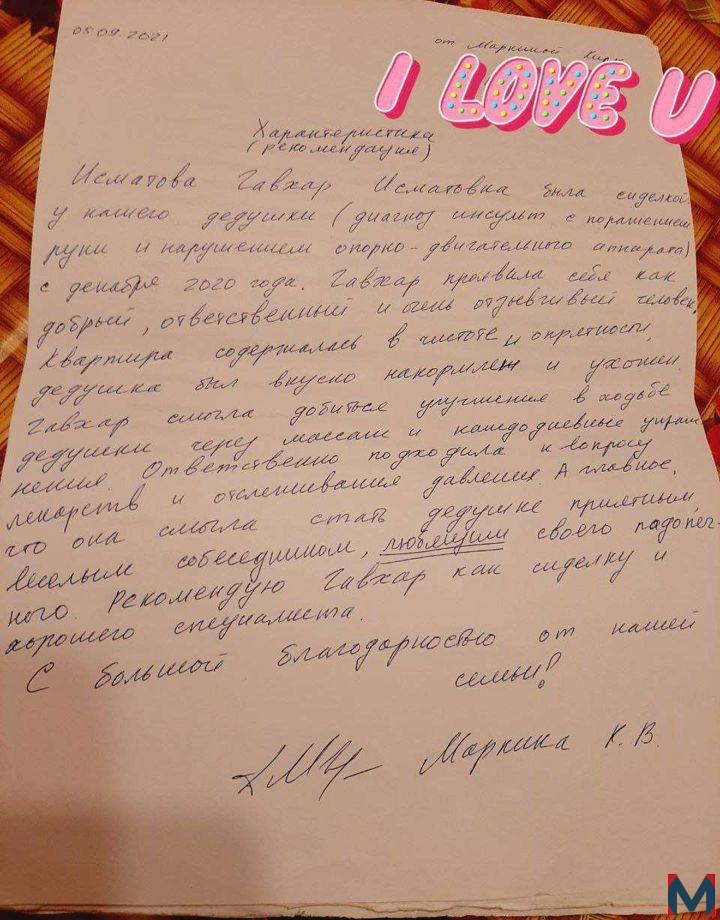 05.09.2021
от Маркиной Киры
I LOVE U
Характеристика
(рекомендация)
Исматова Гавхар Исматовна была сиделкой
у нашего дедушки (диагноз инсульт с поражением
руки и нарушением опорно-двигательного аппарата)
с декабря 2020 года. Гавхар проявила себя как
добрый, ответственный и очень отзывчивый человек,
Квартира содержалась в чистоте и опрятности,
дедушка был вкусно накормлен и ухожен.
Гавхар смогла добиться улучшения в ходьбе
дедушки через массаж и каждодневные упраж
нения. Ответственно подходила к вопросу
лекарств и отслеживания давления. А главное,
что она смогла стать дедушке приятным,
веселым собеседником, любящим своего падопеч-
ного. Рекомендую Гавхар как сиделку и
хорошего специалиста.
С большой благодарностью от нашей
семьи!
Маркина К.В.
M